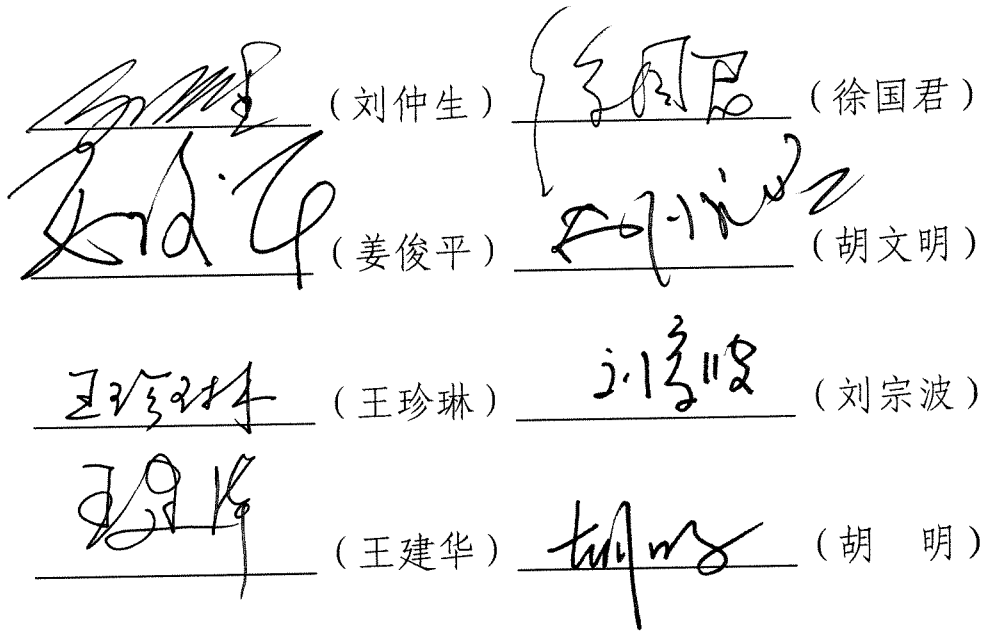 （刘仲生） 徐国君（徐国君）
（姜俊平） （胡文明）
王珍琳（王珍琳） 刘宗波（刘宗波）
王建华（王建华） 胡明（胡　明）